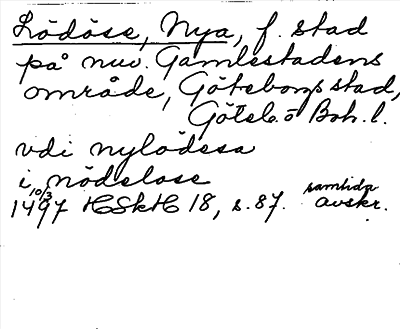 Lödöse, Nya, f. stad
på nuv. Gamlestadens
område, Göteborgs stad,
Göteb. o Boh. l.
vdi nylödesa
i nödelose
10/3 1497 HSkH 18, s. 87. samtida avskr.